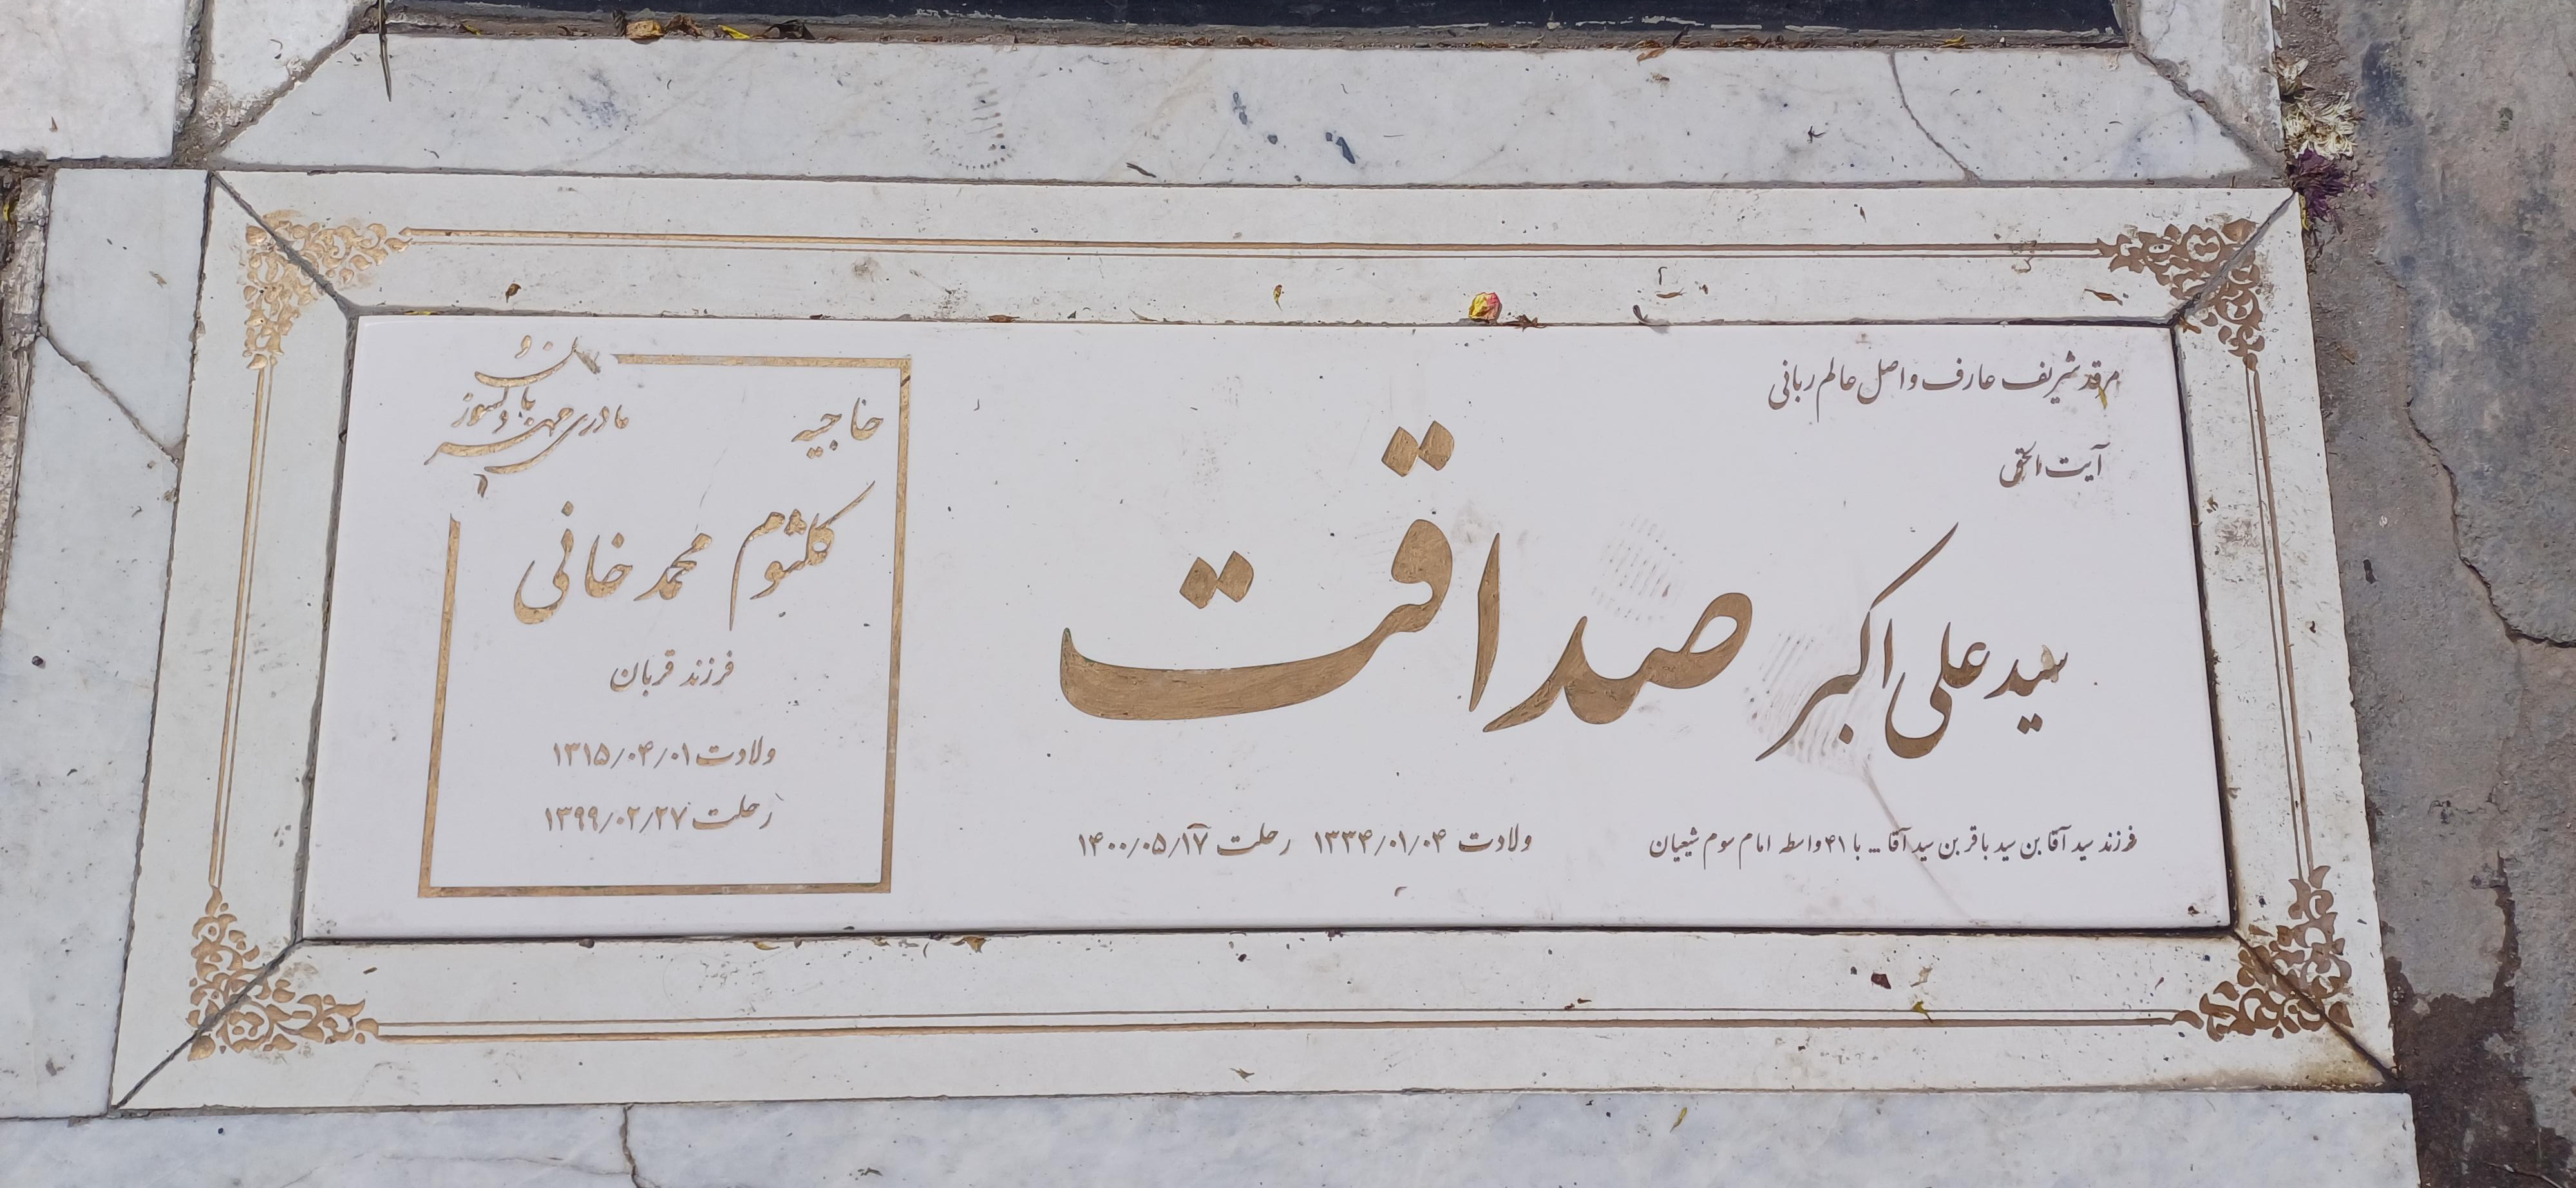 مرقد شریف عارف واصل عالم ربانی
آیت الحق
سید علی اکبر صداقت
فرزند سید آقا بن سید باقر بن سید آقا ... با ۴۱ واسطه امام سوم شیعیان
ولادت ۱۳۳۴/۰۱/۰۴ رحلت ۱۴۰۰/۰۵/۱۷
مادری مهربان و دلسوز
حاجیه
کلثوم محمدخانی
فرزند قربان
ولادت ۱۳۱۵/۰۴/۰۱
رحلت ۱۳۹۹/۰۲/۲۷